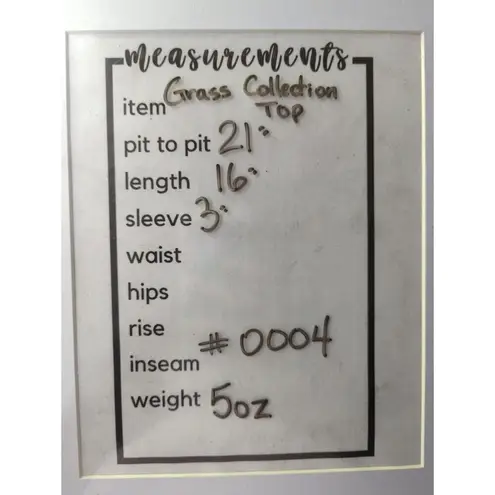 measurements
item Grass Collection
Top
pit to pit 21"
length 16"
sleeve 3"
waist
hips
rise
# 0004
inseam
weight 5oz